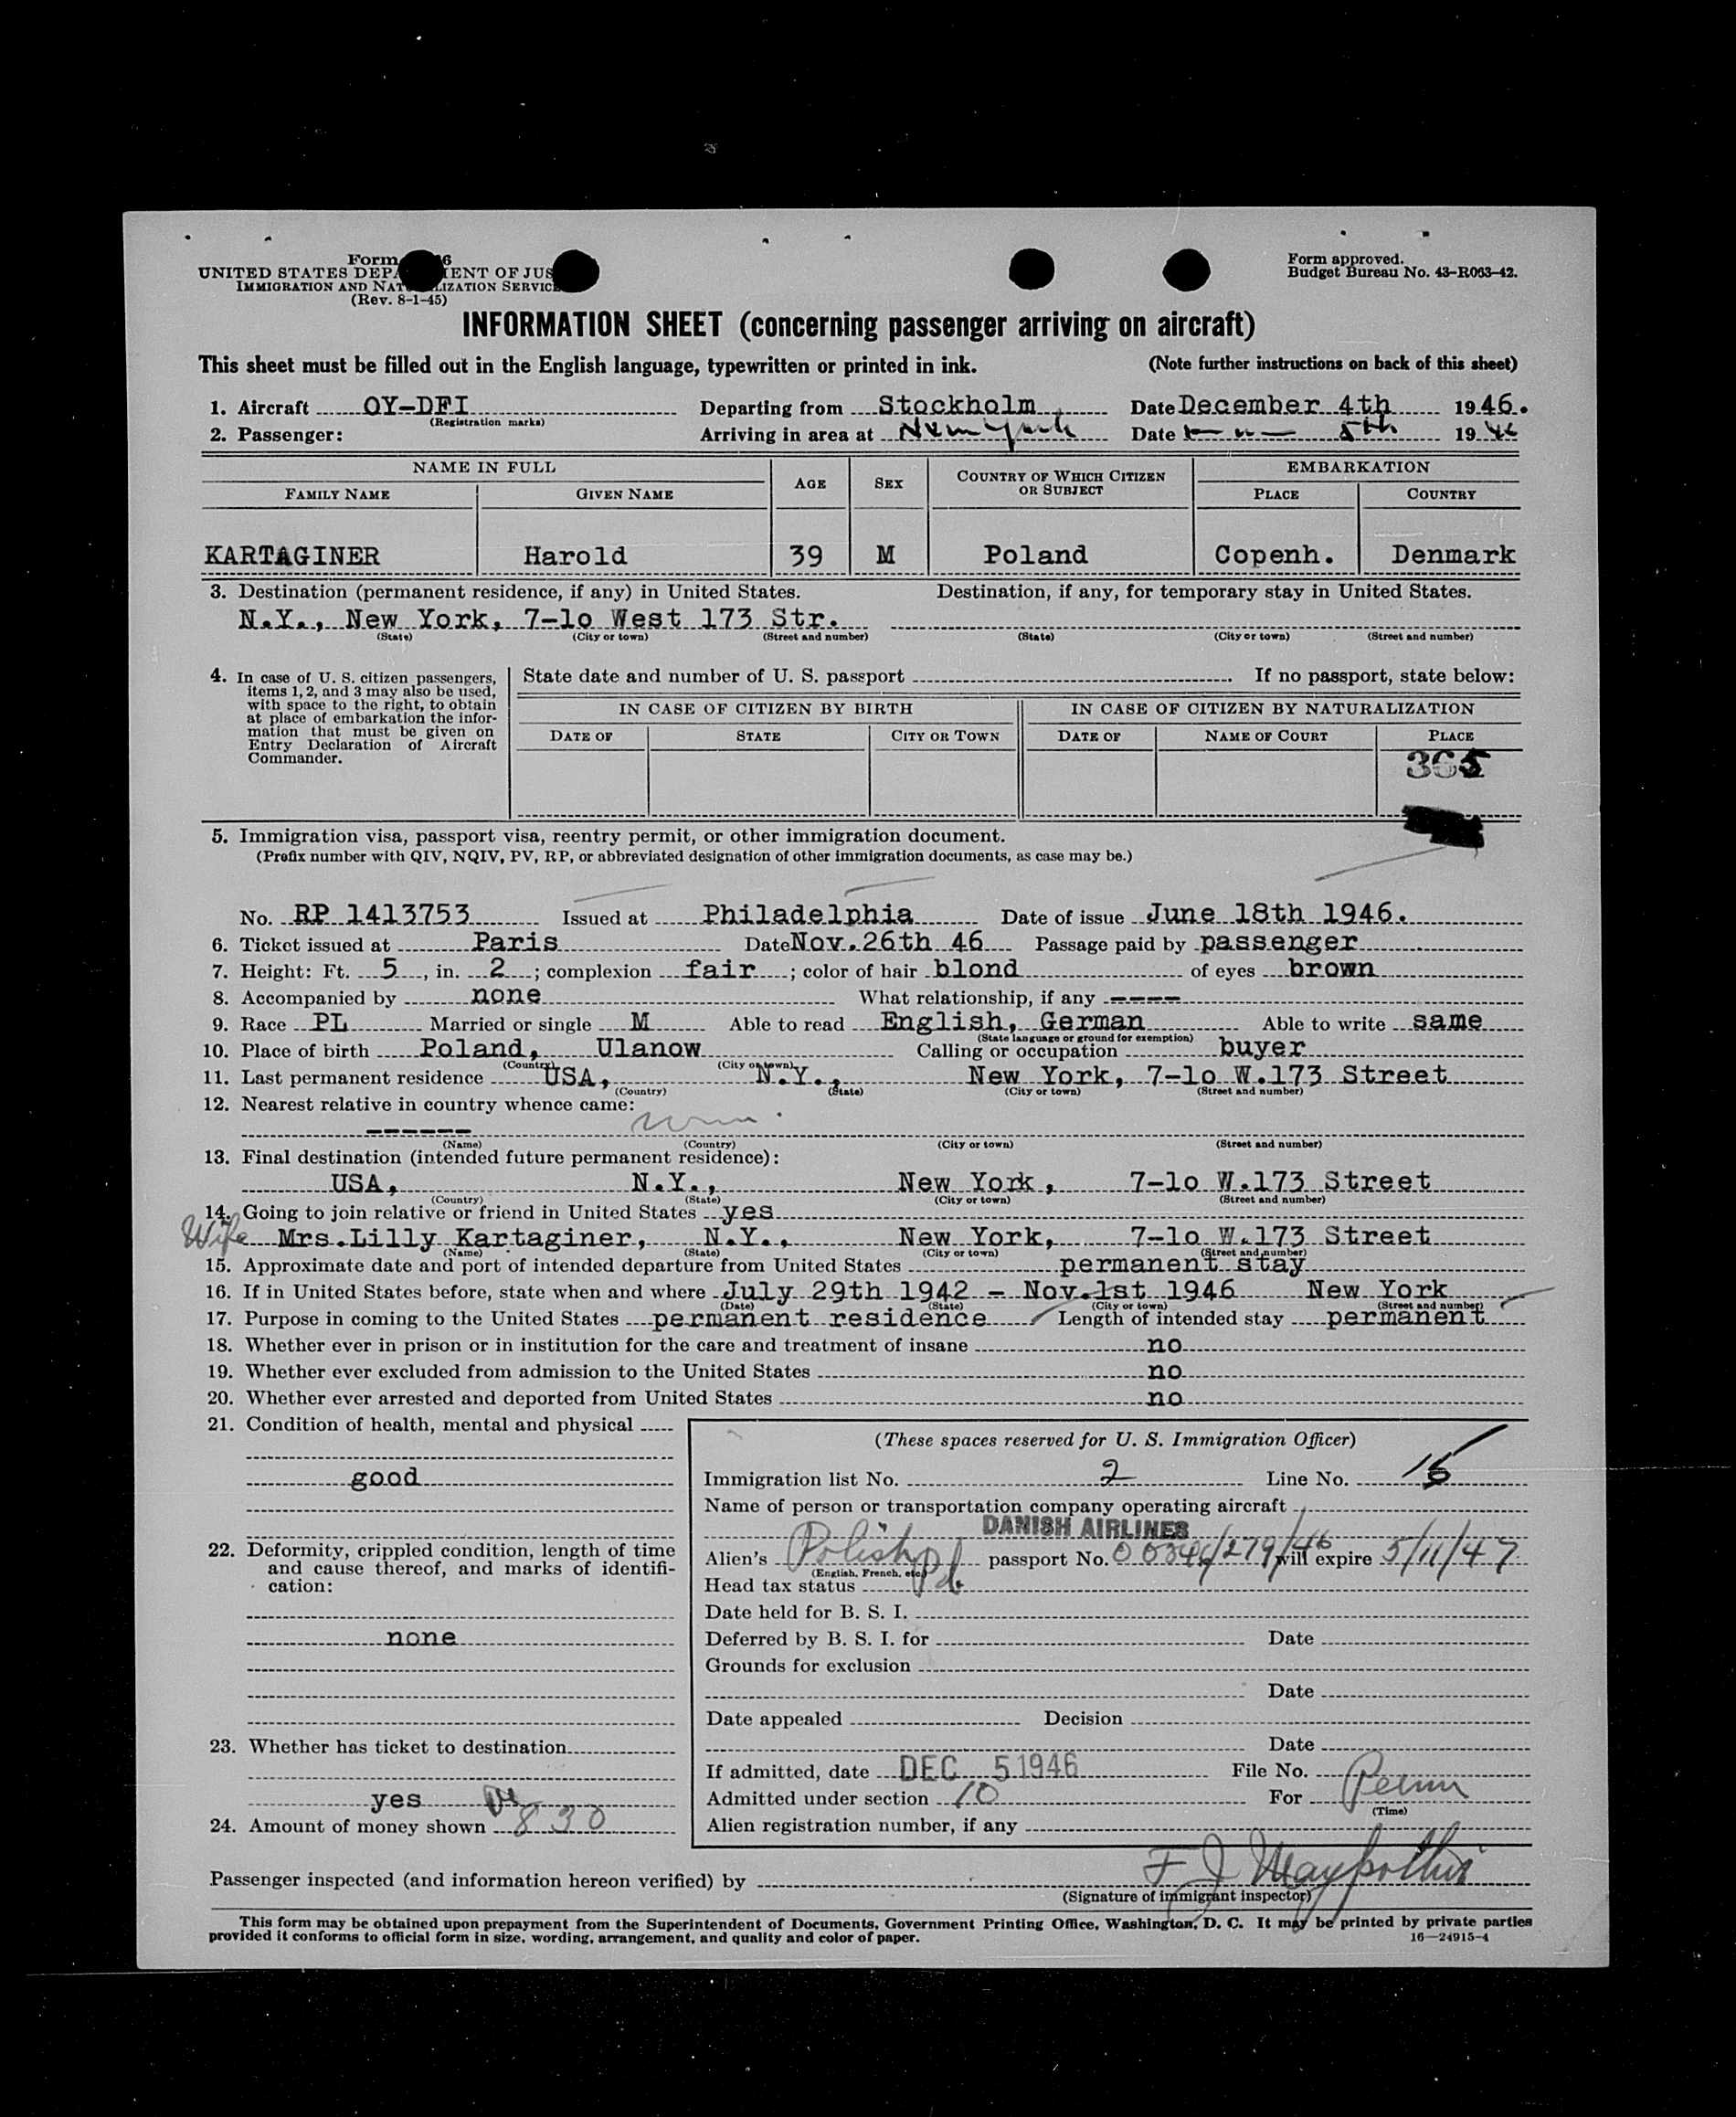 Form 6
UNITED STATES DEPA IENT OF JUS
IMMIGRATION AND NAT LIZATION SERVIC
(Rev. 8-1-45)
Form approved.
Budget Bureau No. 43-R063-42.
INFORMATION SHEET (concerning passenger arriving on aircraft)
This sheet must be filled out in the English language, typewritten or printed in ink. (Note further instructions on back of this sheet)
1. Aircraft OY-DFI Departing from Stockholm Date December 4th 1946.
(Registration marks)
2. Passenger: Arriving in area at New York Date 5th 1946
NAME IN FULL AGE SEX COUNTRY OF WHICH CITIZEN OR SUBJECT EMBARKATION
FAMILY NAME GIVEN NAME PLACE COUNTRY
KARTAGINER Harold 39 M Poland Copenh. Denmark
3. Destination (permanent residence, if any) in United States. Destination, if any, for temporary stay in United States.
N.Y., New York, 7-lo West 173 Str.
(State) (City or town) (Street and number) (State) (City or town) (Street and number)
4. In case of U. S. citizen passengers,
items 1, 2, and 3 may also be used,
with space to the right, to obtain
at place of embarkation the infor-
mation that must be given on
Entry Declaration of Aircraft
Commander.
State date and number of U. S. passport If no passport, state below:
IN CASE OF CITIZEN BY BIRTH IN CASE OF CITIZEN BY NATURALIZATION
DATE OF STATE CITY OR TOWN DATE OF NAME OF COURT PLACE
365
5. Immigration visa, passport visa, reentry permit, or other immigration document.
(Prefix number with QIV, NQIV, PV, RP, or abbreviated designation of other immigration documents, as case may be.)
No. RP 1413753 Issued at Philadelphia Date of issue June 18th 1946.
6. Ticket issued at Paris Date Nov.26th 46 Passage paid by passenger
7. Height: Ft. 5, in. 2; complexion fair; color of hair blond of eyes brown
8. Accompanied by none What relationship, if any ----
9. Race PL Married or single M Able to read English, German Able to write same
(State language or ground for exemption)
10. Place of birth Poland, Ulanow Calling or occupation buyer
(Country) (City or town)
11. Last permanent residence USA, N.Y., New York, 7-lo W.173 Street
(Country) (State) (City or town) (Street and number)
12. Nearest relative in country whence came:
------
(Name) (Country) (City or town) (Street and number)
13. Final destination (intended future permanent residence):
USA, N.Y., New York, 7-lo W.173 Street
(Country) (State) (City or town) (Street and number)
14. Going to join relative or friend in United States yes
Wife Mrs.Lilly Kartaginer, N.Y., New York, 7-lo W.173 Street
(Name) (State) (City or town) (Street and number)
15. Approximate date and port of intended departure from United States permanent stay
16. If in United States before, state when and where July 29th 1942 - Nov.1st 1946 New York
(Date) (State) (City or town) (Street and number)
17. Purpose in coming to the United States permanent residence Length of intended stay permanent
18. Whether ever in prison or in institution for the care and treatment of insane no
19. Whether ever excluded from admission to the United States no
20. Whether ever arrested and deported from United States no
21. Condition of health, mental and physical
good
22. Deformity, crippled condition, length of time
and cause thereof, and marks of identifi-
cation:
none
23. Whether has ticket to destination
yes
24. Amount of money shown 830
(These spaces reserved for U. S. Immigration Officer)
Immigration list No. 2 Line No. 15
Name of person or transportation company operating aircraft
DANISH AIRLINES
Alien's Polish passport No. 00346/279/46 will expire 5/11/47
(English, French, etc.)
Head tax status
Date held for B. S. I.
Deferred by B. S. I. for Date
Grounds for exclusion
Date
Date appealed Decision
Date
If admitted, date DEC 5 1946 File No.
Admitted under section 10 For Perm
(Time)
Alien registration number, if any
Passenger inspected (and information hereon verified) by
(Signature of immigrant inspector)
This form may be obtained upon prepayment from the Superintendent of Documents, Government Printing Office, Washington, D. C. It may be printed by private parties
provided it conforms to official form in size, wording, arrangement, and quality and color of paper. 16—24915-4